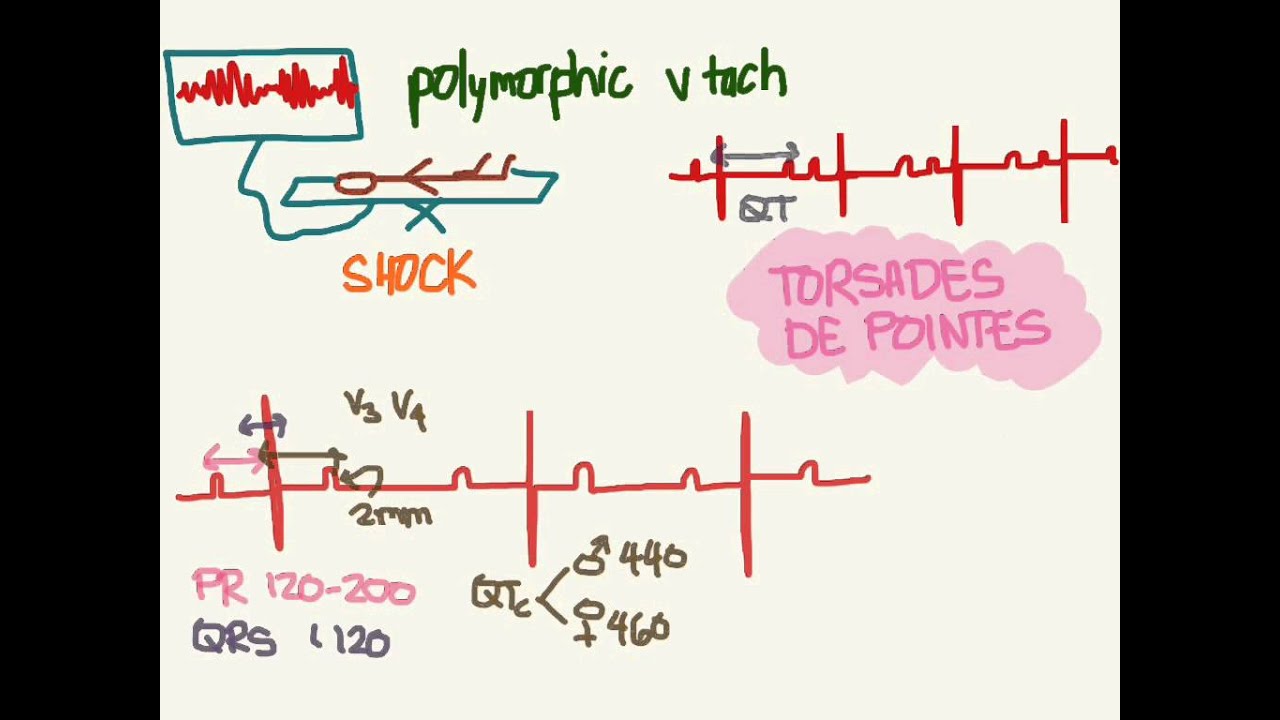 polymorphic v tach
QT
SHOCK
TORSADES
DE POINTES
V3 V4
2mm
PR 120-200
QRS < 120
QTc
♂ 440
♀ 460